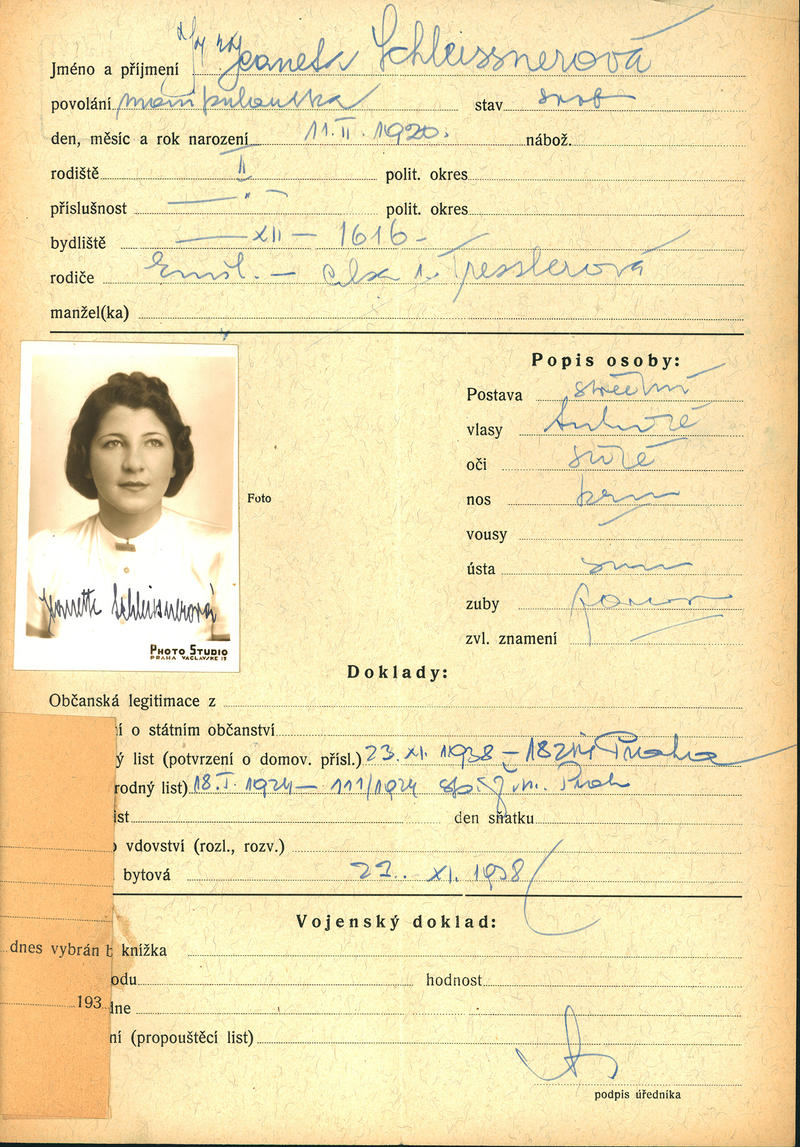 Jméno a příjmení Schleissnerová
povolání manipulantka stav svob
den, měsíc a rok narození 11. II. 1920. nábož.
rodiště II polit. okres
příslušnost — " — polit. okres
bydliště — XII — 1616 -
rodiče Emil. — Elsa r. Tresslerová
manžel(ka)
Popis osoby:
Postava střední
vlasy
oči
nos
vousy
ústa
zuby
zvl. znamení
Foto
Jeanette Schleissnerová
PHOTO STUDIO
PRAHA VACLAVKE 17
Doklady:
Občanská legitimace z
í o státním občanství
ý list (potvrzení o domov. přísl.) 23. XI. 1938 – Praha
rodný list) 18. I. 1924 — 111/1924
ist den sňatku
vdovství (rozl., rozv.)
bytová 23. XI. 1938
Vojenský doklad:
dnes vybrán b knížka
odu hodnost
193 dne
ní (propouštěcí list)
podpis úředníka